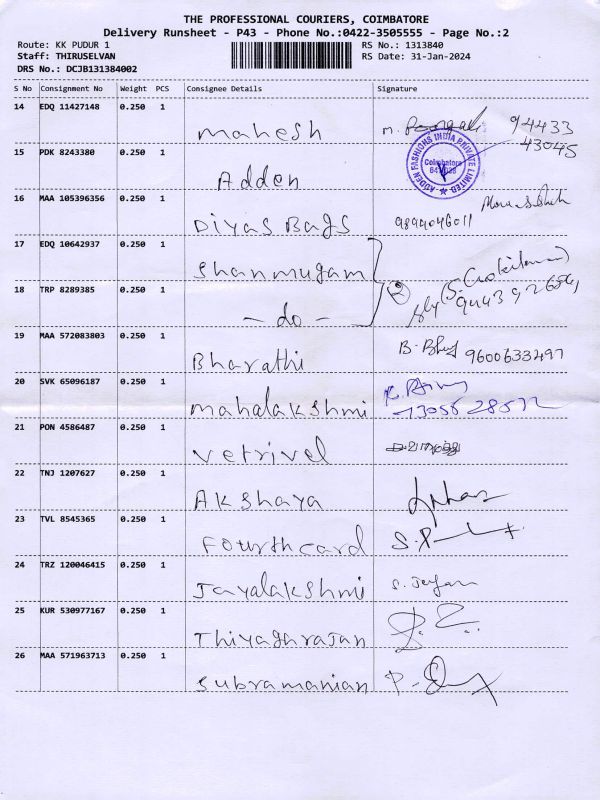 THE PROFESSIONAL COURIERS, COIMBATORE
Delivery Runsheet - P43 - Phone No.:0422-3505555 - Page No.:2
Route: KK PUDUR 1 RS No.: 1313840
Staff: THIRUSELVAN RS Date: 31-Jan-2024
DRS No.: DCJB131384002
S No Consignment No Weight PCS Consignee Details Signature
14 EDQ 11427148 0.250 1 Mahesh 94433
43045
15 PDK 8243380 0.250 1 Adden
ADDEN FASHIONS INDIA PRIVATE LIMITED
Coimbatore
16 MAA 105396356 0.250 1 Diyas Bags
17 EDQ 10642937 0.250 1 Shanmugam
18 TRP 8289385 0.250 1 - do -
19 MAA 572083803 0.250 1 Bharathi 9600633497
20 SVK 65096187 0.250 1 Mahalakshmi
21 PON 4586487 0.250 1 Vetrivel
22 TNJ 1207627 0.250 1 Akshaya
23 TVL 8545365 0.250 1 Fourthcard
24 TRZ 120046415 0.250 1 Jayalakshmi
25 KUR 530977167 0.250 1 Thiyagarajan
26 MAA 571963713 0.250 1 Subramanian